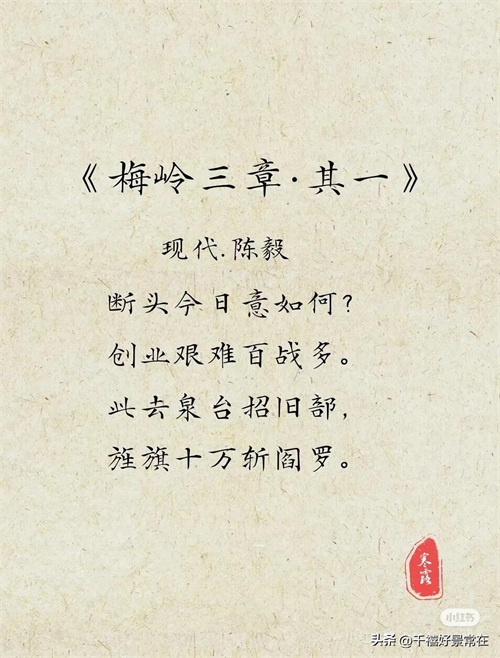 《梅岭三章·其一》
现代.陈毅
断头今日意如何？
创业艰难百战多。
此去泉台招旧部，
旌旗十万斩阎罗。
寒露
小红书
头条 @千禧好景常在